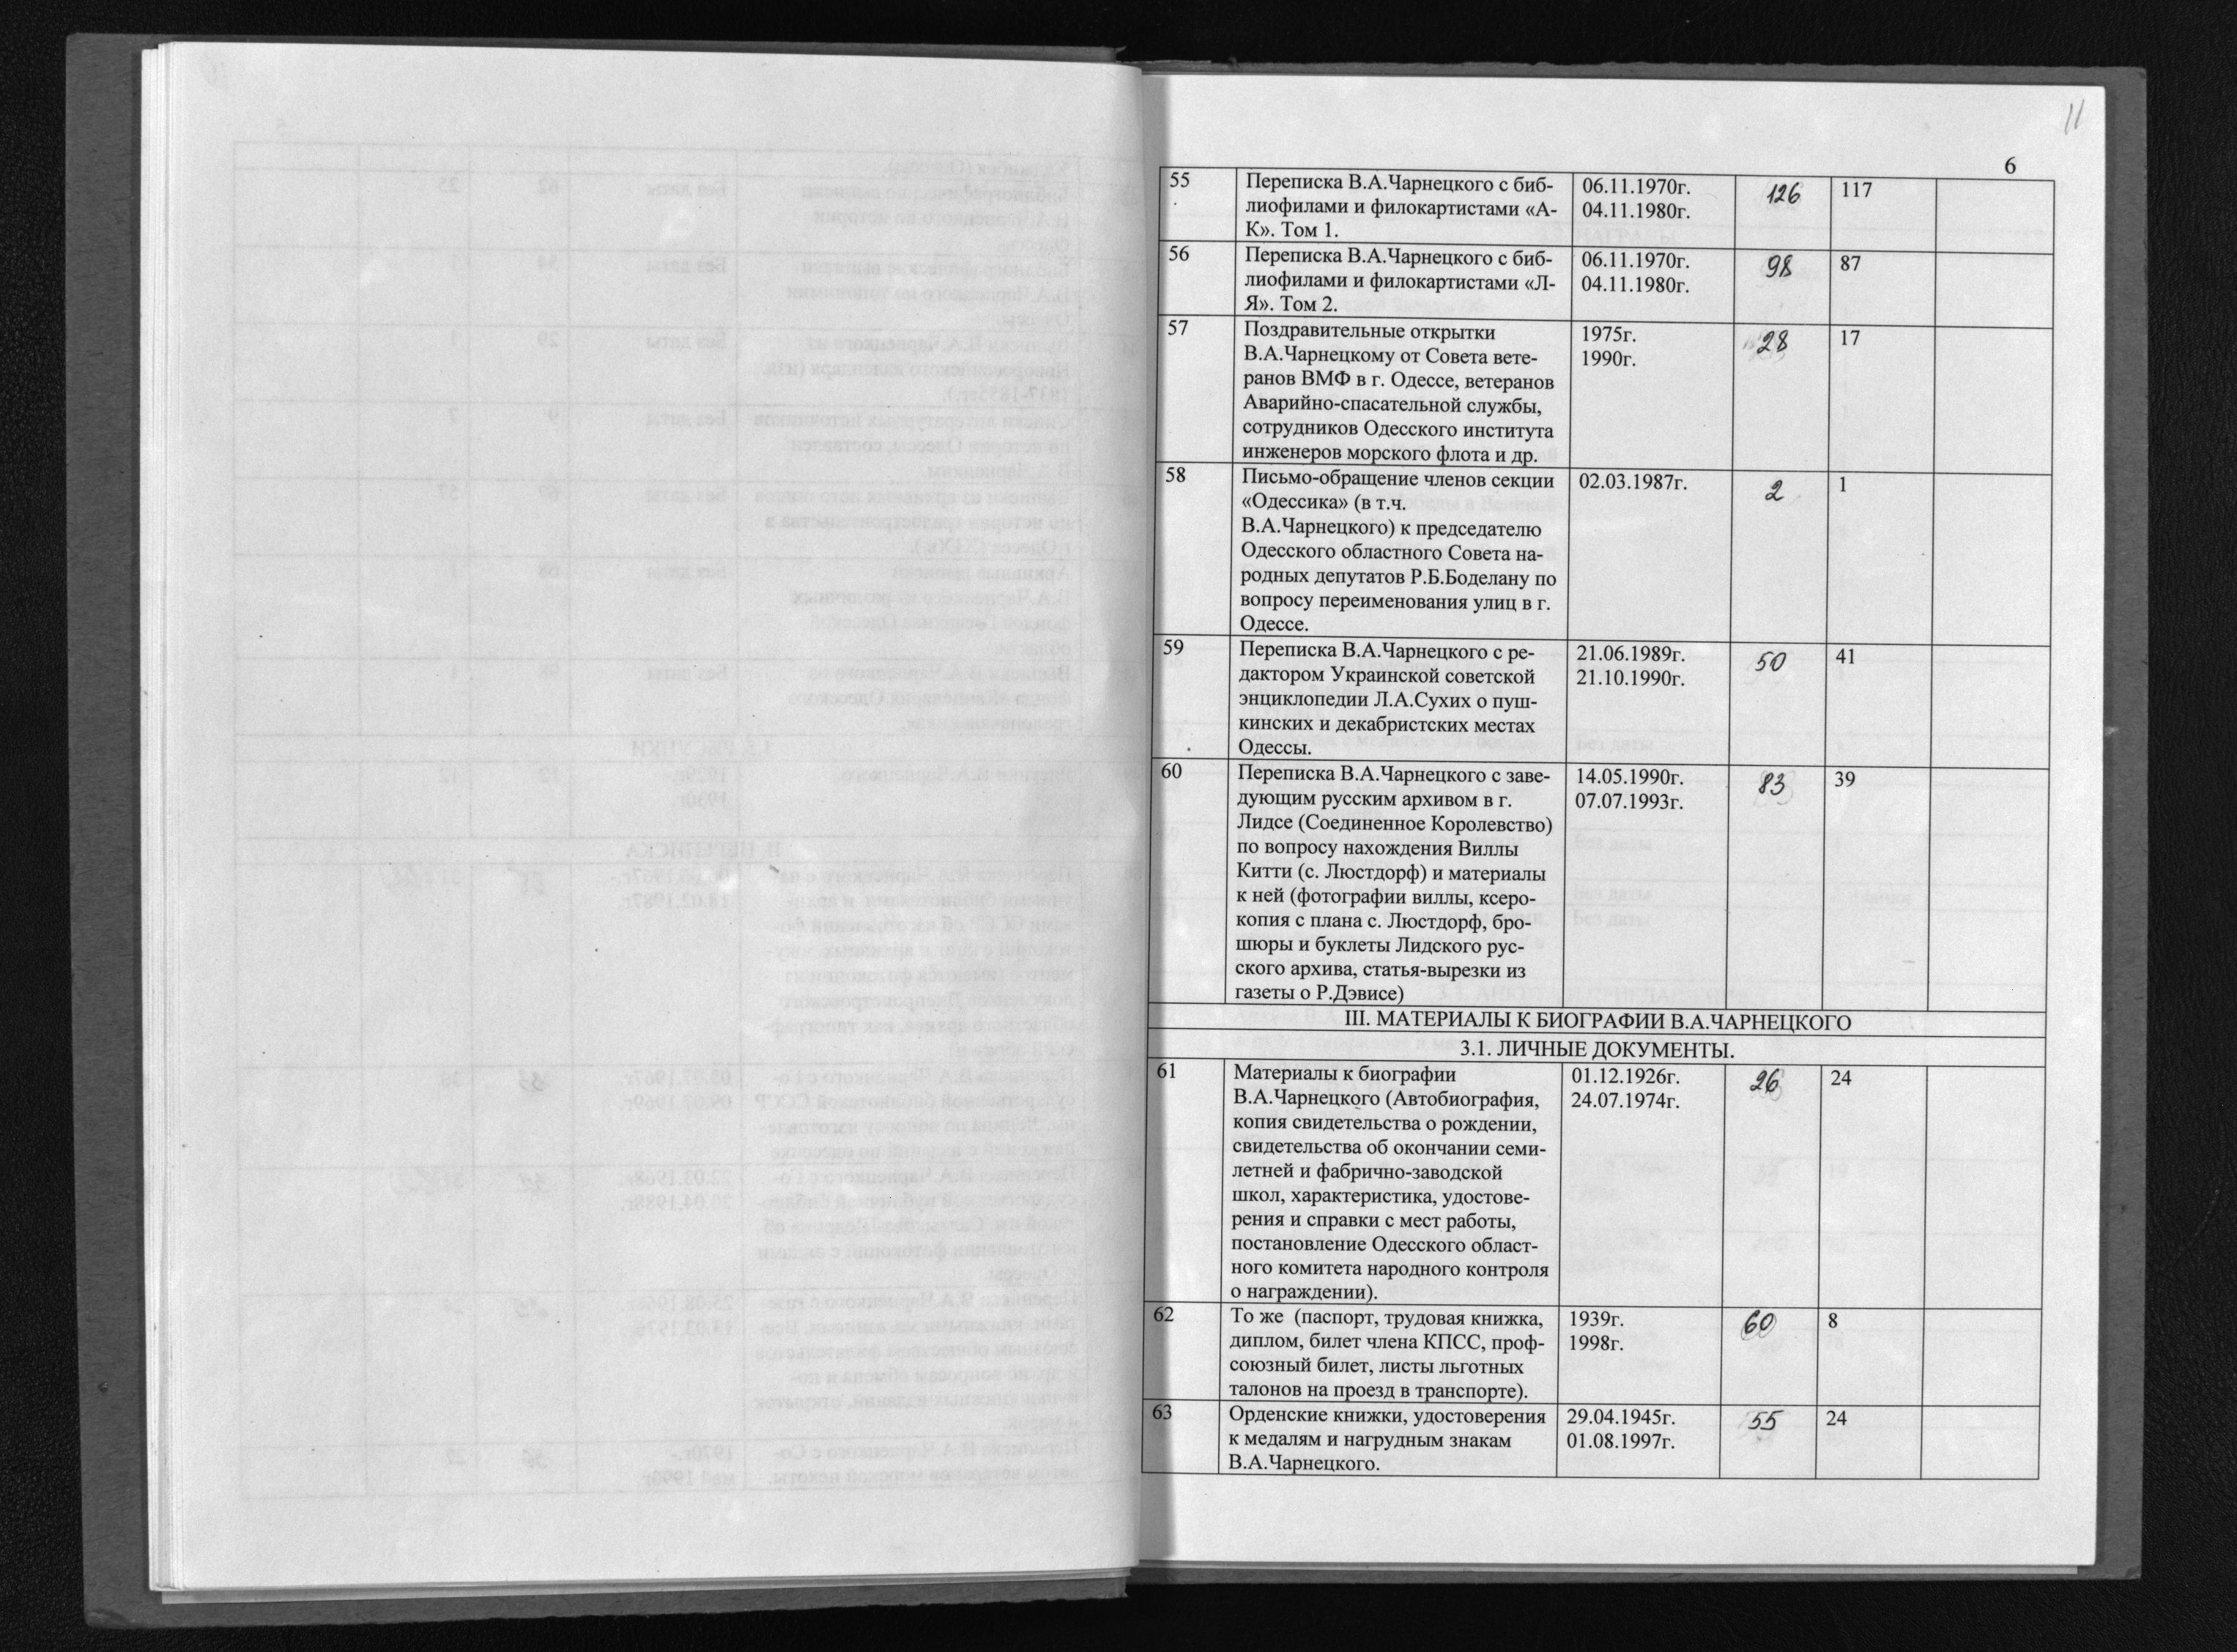 11
6
55 Переписка В.А.Чарнецкого с биб- 06.11.1970г. 126 117
лиофилами и филокартистами «А- 04.11.1980г.
К». Том 1.
56 Переписка В.А.Чарнецкого с биб- 06.11.1970г. 98 87
лиофилами и филокартистами «Л- 04.11.1980г.
Я». Том 2.
57 Поздравительные открытки 1975г. 28 17
В.А.Чарнецкому от Совета вете- 1990г.
ранов ВМФ в г. Одессе, ветеранов
Аварийно-спасательной службы,
сотрудников Одесского института
инженеров морского флота и др.
58 Письмо-обращение членов секции 02.03.1987г. 2 1
«Одессика» (в т.ч.
В.А.Чарнецкого) к председателю
Одесского областного Совета на-
родных депутатов Р.Б.Боделану по
вопросу переименования улиц в г.
Одессе.
59 Переписка В.А.Чарнецкого с ре- 21.06.1989г. 50 41
дактором Украинской советской 21.10.1990г.
энциклопедии Л.А.Сухих о пуш-
кинских и декабристских местах
Одессы.
60 Переписка В.А.Чарнецкого с заве- 14.05.1990г. 83 39
дующим русским архивом в г. 07.07.1993г.
Лидсе (Соединенное Королевство)
по вопросу нахождения Виллы
Китти (с. Люстдорф) и материалы
к ней (фотографии виллы, ксеро-
копия с плана с. Люстдорф, бро-
шюры и буклеты Лидского рус-
ского архива, статья-вырезки из
газеты о Р.Дэвисе)
III. МАТЕРИАЛЫ К БИОГРАФИИ В.А.ЧАРНЕЦКОГО
3.1. ЛИЧНЫЕ ДОКУМЕНТЫ.
61 Материалы к биографии 01.12.1926г. 26 24
В.А.Чарнецкого (Автобиография, 24.07.1974г.
копия свидетельства о рождении,
свидетельства об окончании семи-
летней и фабрично-заводской
школ, характеристика, удостове-
рения и справки с мест работы,
постановление Одесского област-
ного комитета народного контроля
о награждении).
62 То же (паспорт, трудовая книжка, 1939г. 60 8
диплом, билет члена КПСС, проф- 1998г.
союзный билет, листы льготных
талонов на проезд в транспорте).
63 Орденские книжки, удостоверения 29.04.1945г. 55 24
к медалям и нагрудным знакам 01.08.1997г.
В.А.Чарнецкого.